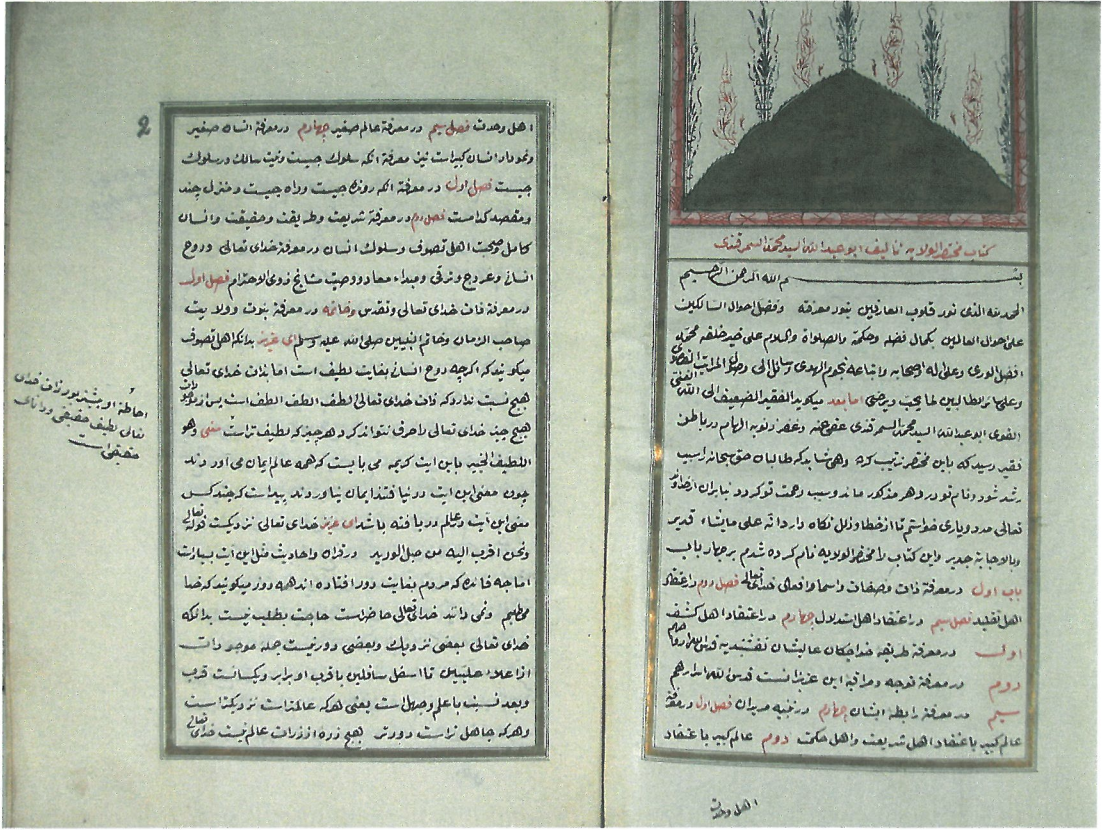 كتاب مختصر الولايه تاليف ابو عبد الله السيد محمد السمرقندى
بسم الله الرحمن الرحيم
الحمد لله الذى نور قلوب العارفين بنور معرفته وفضل احوال السالكين
على احوال العالمين بكمال فضله وحكمته والصلواة والسلام على خير خلقه محمد
افضل الورى وعلى اله واصحابه واتباعه نجوم الهدى
وعلى سائر الطالبين لما يحب ويرضى اما بعد ميكويد الفقير الضعيف الى الله الغنى
القوى ابو عبد الله السيد محمد السمرقندى عفى عنه وغفر ذنوبه الهام در باطن
فقير رسيد كه باين مختصر ترتيب كرده وهى شايد كه طالبان حق سبحانه را سبب
رشد شود ونام تو در دهر مذكور ماند وسبب رحمت تو كردد بنابران از خداوند
تعالى مدد ويارى خواستم تا از خطا وزلل نكاه دارد انه على ما يشاء قدير
وبالاجابة جدير واين كتاب را مختصر الولايه نام كرده شدم بر چهار باب
باب اول در معرفة ذات وصفات واسما وافعال خداى تعالى فصل دوم در اعتقاد
اهل تقليد فصل سيم در اعتقاد اهل استدلال چهارم در اعتقاد اهل كشف
اول در معرفة طريقه خواجكان عاليشان نقشبنديه قدس الله ارواحهم
دوم در معرفة توجه ومراقبة اين عزيزانست قدس الله اسرارهم
سيم در معرفة رابطه ايشان چهارم در تنبيه مريدان فصل اول در معرفة
عالم كبير با عتقاد اهل شريعت واهل حكمت دوم عالم كبير با عتقاد
اهل وحدت
2
اهل وحدت فصل سيم در معرفة عالم صغير چهارم در معرفة انسان صغير
ونمودار انسان كبير است نيز معرفة انكه سلوك چيست ونيت سالك در سلوك
چيست فصل اول در معرفة انكه رونده چيست وراه چيست ومنزل چند
ومقصد كدامست فصل دوم در معرفة شريعت وطريقت وحقيقت وانسان
كامل وصحبت اهل تصوف وسلوك انسان در معرفة خداى تعالى وروح
انسانى وعروج وترقى ومبداء معاد ووصيت مشايخ ذوى الاحترام فصل اول
در معرفة ذات خداى تعالى وتقدس وخاتمه در معرفة نبوت وولايت
صاحب الزمان وخاتم النبيين صلى الله عليه وسلم اى عزيز بدانكه اهل تصوف
ميكويند كه اكرچه روح انسانى بغايت لطيف است اما بذات خداى تعالى
هيچ نسبت ندارد كه ذات خداى تعالى لطف الطف الطف است پس از
هيچ چيز خداى تعالى را حرق نتواند كرد هر چيز كه لطيف تر است معنى وهو
اللطيف الخبير باين ايت كريمه مى بايست كه همه عالم ايمان مى آوردند
چون معنى اين ايت در نيافتند ايمان نياوردند پيداست كه چند كس
معنى اين آيت در عالم دريافته باشد اى عزيز خداى تعالى نزديكست قوله تعالى
ونحن اقرب اليه من حبل الوريد در قران واحاديث مثل اين آيت بسيارست
اما چه فائده كه مردم بغايت دور افتاده اند همه روز ميكويند كه خدا
مى طلبيم ونمى دانند خداى تعالى حاضر است حاجت بطلب نيست بدانكه
خداى تعالى ببعضى نزديك وببعضى دور نيست جمله موجودات
از اعلا عليين تا اسفل سافلين با قرب او برابر ويكسانست قرب
وبعد نسبت با علم وجهل است يعنى هركه عالمتر است نزديكتر است
وهركه جاهل تر است دورتر هيچ ذره از ذرات عالم نيست خداى تعالى
احاطهٔ او بيشتر بود ذات خداى
تعالى لطيف حقيقى ودانا
حقيقى است